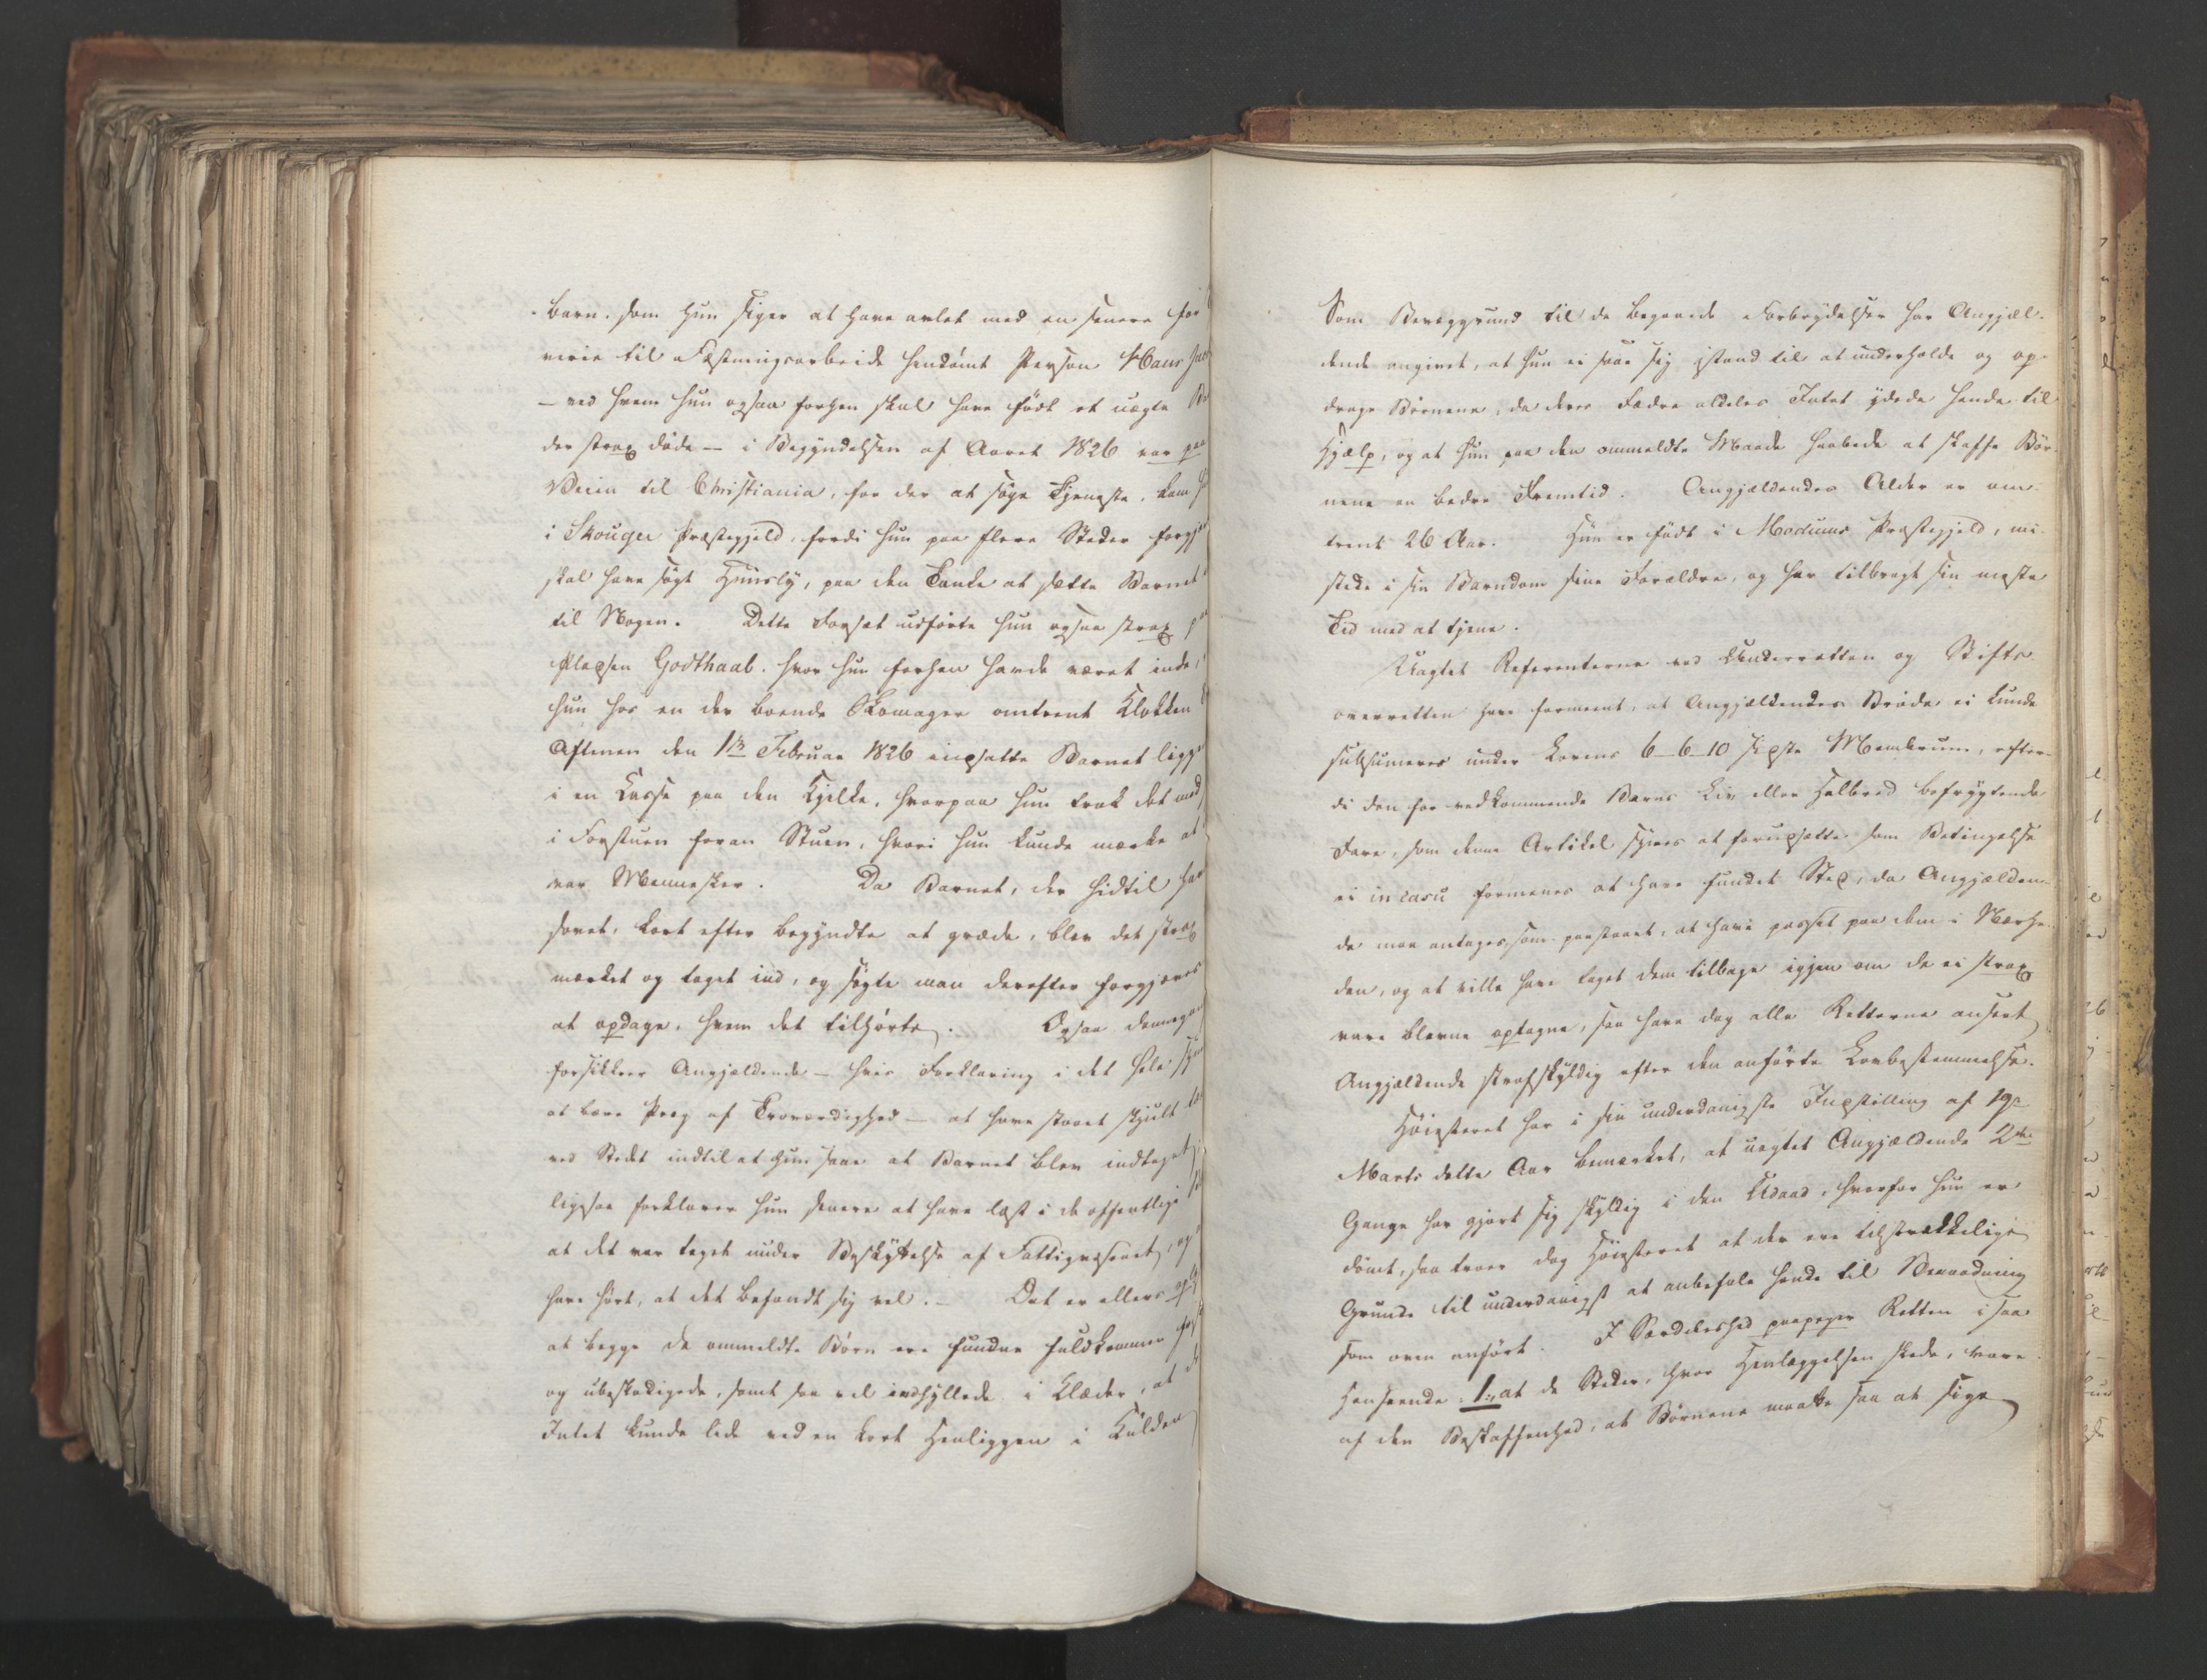 Barn, som hun siger at have avlet med en senere for
rerie til Fæstningsarbeide hendømt Person Hans
– ved hvem hun ogsaa forhen skal have født et uægte
der strax døde – i Begyndelsen af Aaret 1826 var paa
Veien til Christiania, for der at søge Tjeneste, kom
i Skouger Præstegjeld, fordi hun paa flere Steder forgj
skal have søgt Huusly, paa den Tanke at sætte Barnet
til Nogen. Dette Forsæt udførte hun ogsaa strax
Pladsen Godthaab, hvor hun forhen havde været inde,
hun hos en der boende Skomager omtrent Klokken
Aftenen den 1ste Februar 1826 insatte Barnet ligge
i en Kasse paa den Kjelke, hvorpaa hun trak det med,
i Forstuen foran Stuen, hvori hun kunde mærke at
var Mennesker. Da Barnet, der hidtil hav
sovet, kort efter begyndte at græde, blev det strax
mærket og taget ind, og søgte man derefter forgjæves
at opdage, hvem det tilhørte. Ogsaa dennegan
forsikkrer Angjældende – hvis Forklaring i det Hele
at bære Præg af Troværdighed – at have staaet skjult
ved Stedet indtil at hun saae at Barnet blev indtaget
ligesaa forklarer hun senere at have læst i de offentlige
at det var taget under Beskyttelse af Fattigvæsenet, og
have hørt, at det befandt sig vel. – Det er ellers opl
at begge de ommeldte Børn ere fundne fuldkommen
og ubeskadigede, samt saa vel indhyllede i Klæder, at
Intet kunde lide ved en kort Henliggen i Kulden
Som Bevæggrund til de begaaede Forbrydelser har Angjæl-
dende angivet, at hun ei saae sig istand til at underholde og op-
drage Børnene, da deres Fædre aldeles Intet ydede hende til
Hjælp, og at hun paa den ommeldte Maade haabede at skaffe Bør-
nene en bedre Fremtid. Angjældendes Alder er om-
trent 26 Aar. Hun er født i Modums Præstegjeld, mi-
stede i sin Barndom sine Forældre, og har tilbragt sin meste
Tid med at tjene.
Uagtet Referenterne ved Underretten og Stifts-
overretten have formeent, at Angjældendes Brøde ei kunde
subsumeres under Lovens 6–6–10 sidste Membrum, efter-
di den for vedkommende Barns Liv eller Helbred befrygtende
Fare, som denne Artikel synes at forudsætte som Betingelse
ei in casu formenes at have fundet Sted, da Angjælden-
de maa antages, som paastaaet, at have passet paa dem i Nærhe-
den, og at ville have taget dem tilbage igjen om de ei strax
vare blevne optagne, saa have dog alle Retterne anseet
Angjældende strafskyldig efter den anførte Lovbestemmelse.
Høiesteret har i sin underdanigste Indstilling af 19de
Marts dette Aar bemærket, at uagtet Angjældende 2de
Gange har gjort sig skyldig i den Udaad, hvorfor hun er
dømt, saa troer dog Høiesteret at der ere tilstrækkelige
Grunde til underdanigst at anbefale hende til Benaadning
som oven anført. I Særdeleshed paapeger Retten i saa
Henseende 1., at de Steder, hvor Henlæggelsen skede, vare
af den Beskaffenhed, at Børnene maatte saa at sige